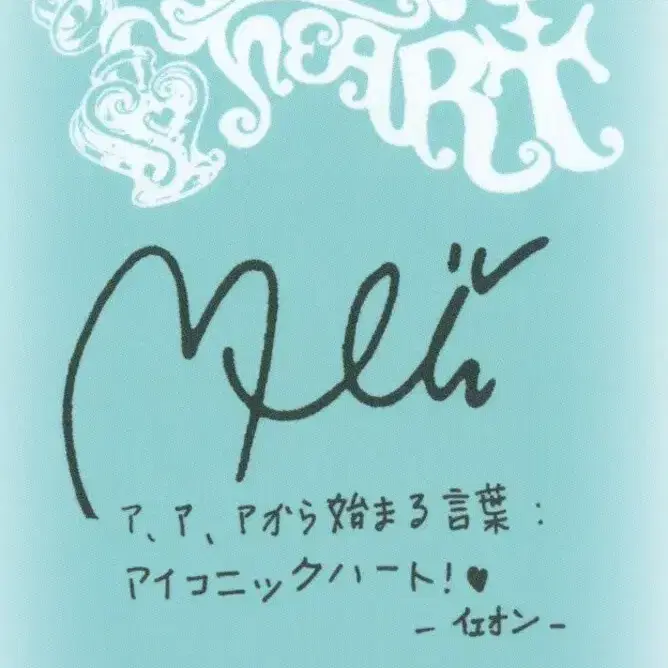 HEART
ア、ア、アから始まる言葉：
アイコニックハート！♥
- イェオン -